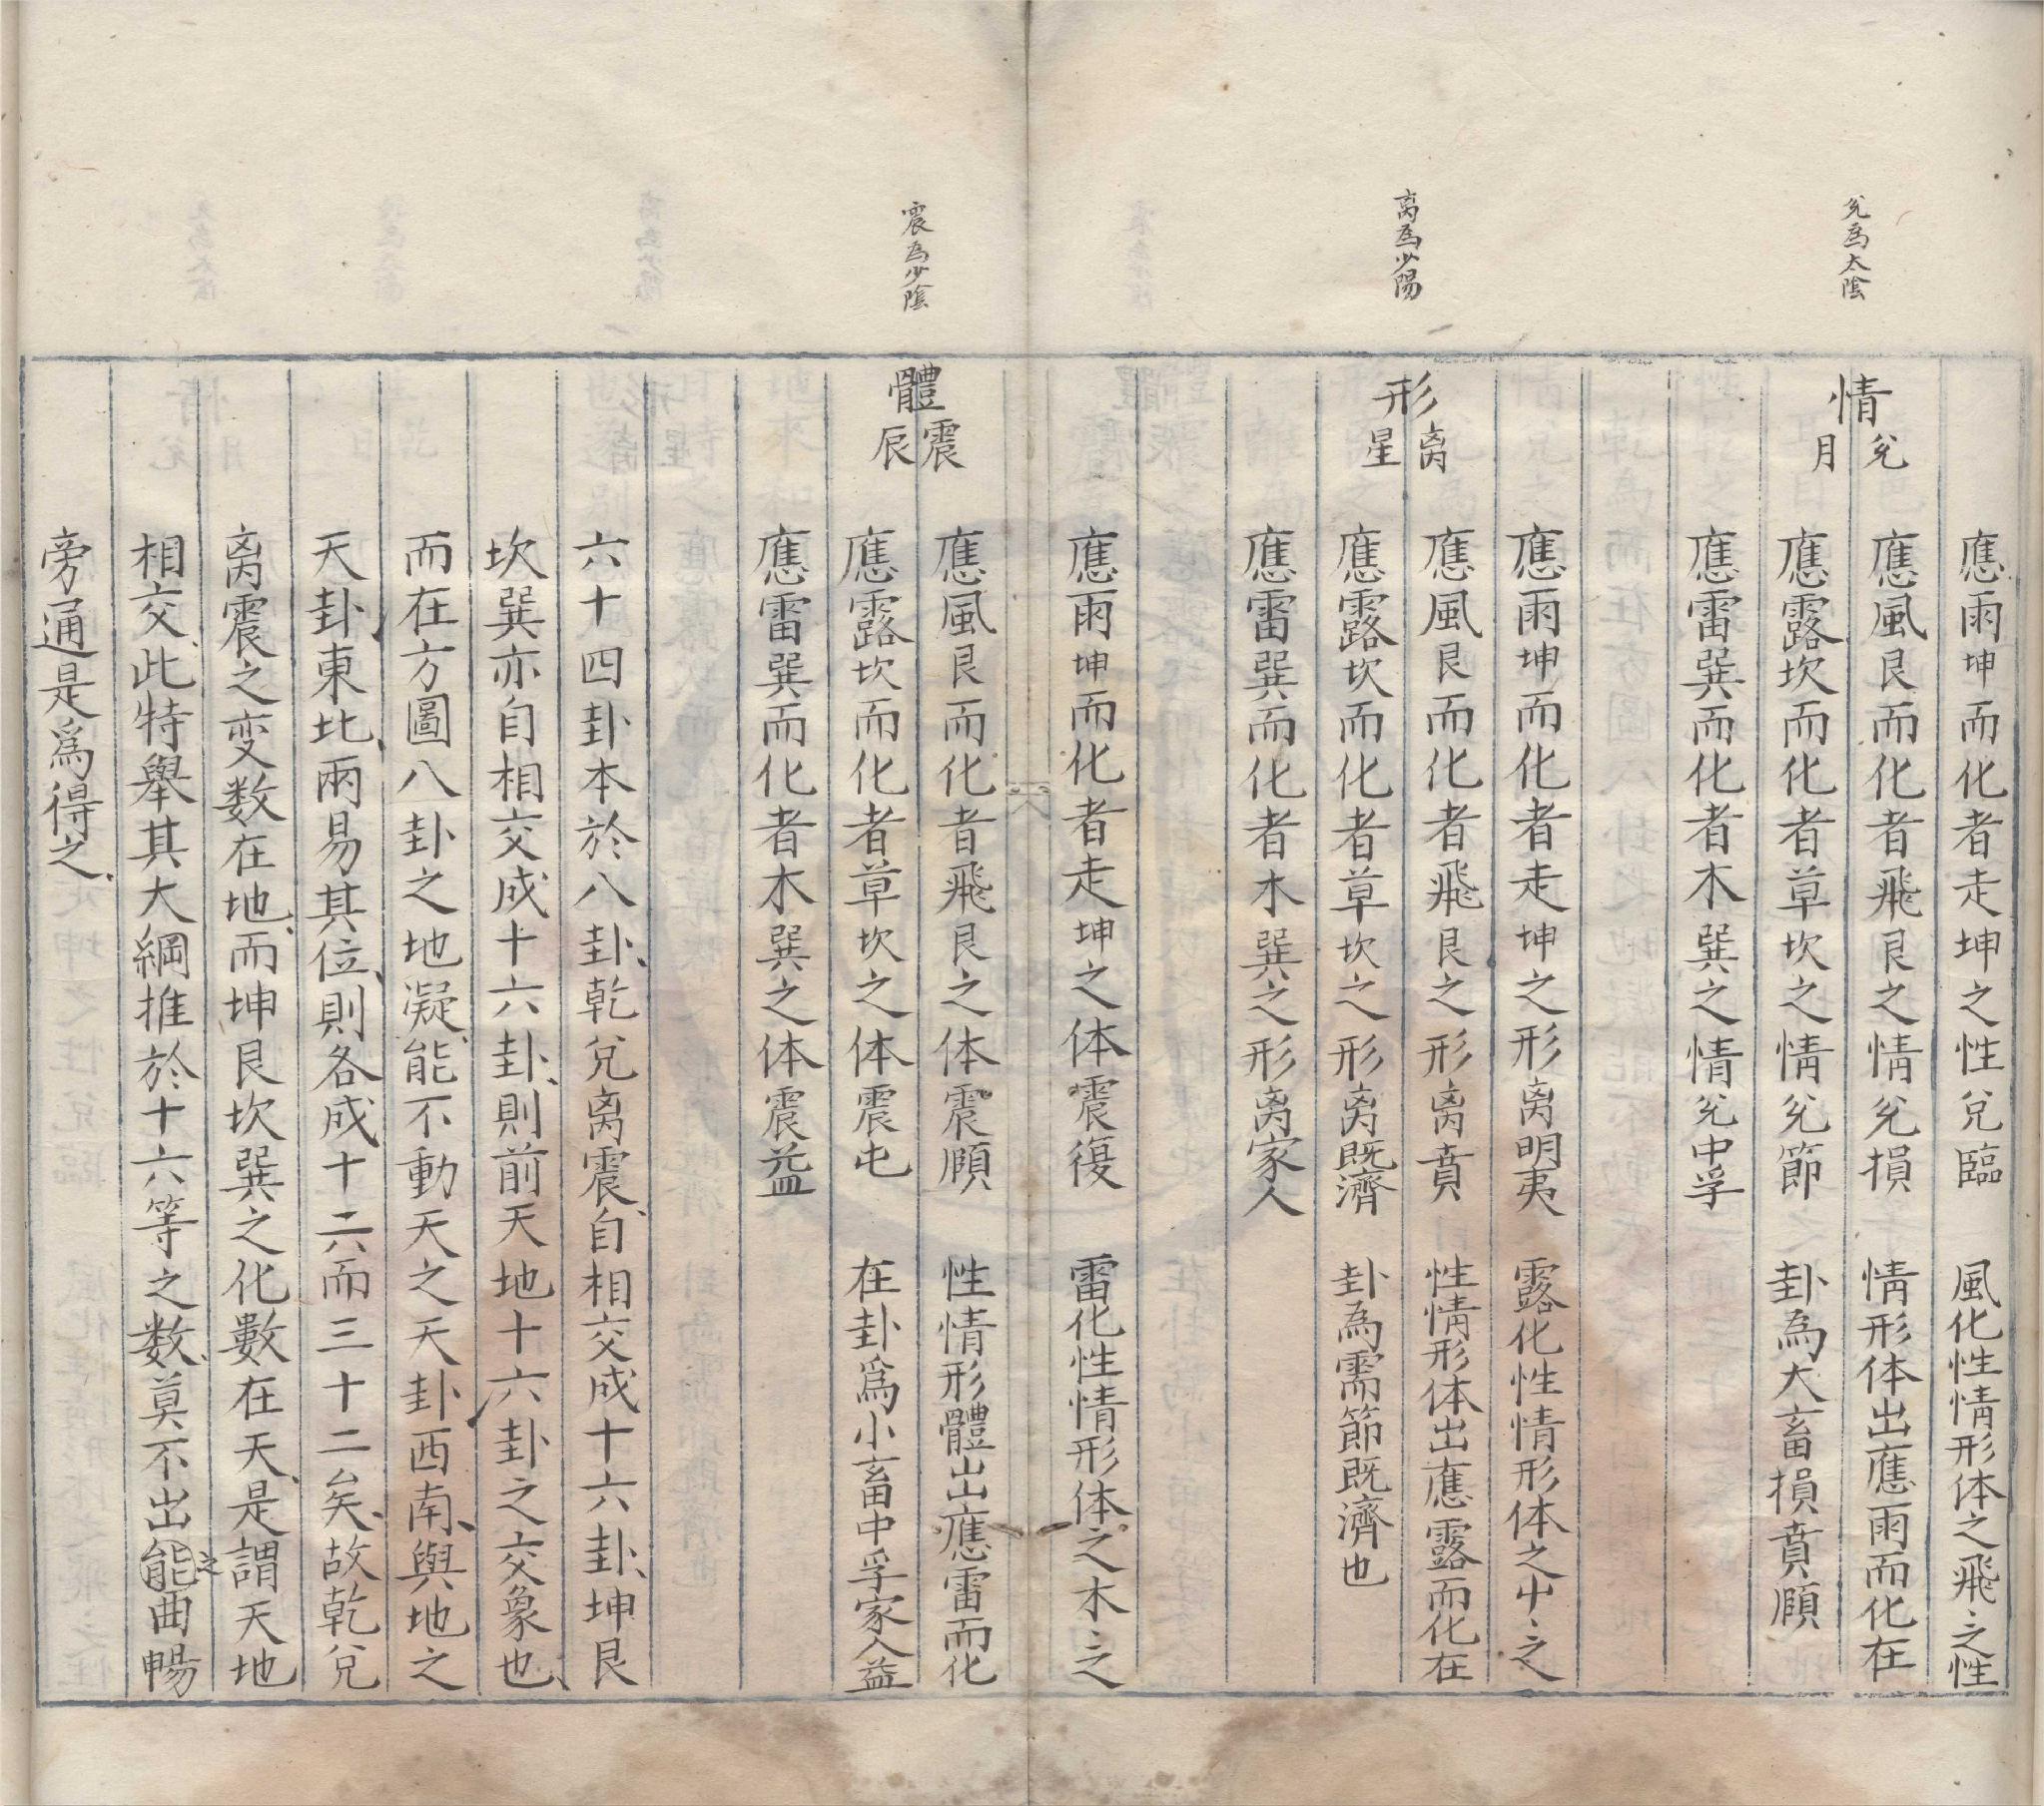 兌為太陰
情
兌
月
應雨坤而化者走坤之性兌臨　風化性情形体之飛〻之性
應風艮而化者飛艮之情兌損　情形体出應雨而化在
應露坎而化者草坎之情兌節　卦為大畜損賁頤
應雷巽而化者木巽之情兌中孚
离為少陽
形
离
星
應雨坤而化者走坤之形离明夷　露化性情形体之屮〻之
應風艮而化者飛艮之形离賁　性情形体出應露而化在
應露坎而化者草坎之形离既濟　卦為需節既濟也
應雷巽而化者木巽之形离家人
應雨坤而化者走坤之体震復　雷化性情形体之木〻之
震為少陰
體
震
辰
應風艮而化者飛艮之体震頤　性情形體出應雷而化
應露坎而化者草坎之体震屯　在卦爲小畜中孚家人益
應雷巽而化者木巽之体震益
六十四卦本於八卦、乾兌离震、自相交成十六卦、坤艮
坎巽亦自相交成十六卦、則前天地十六卦之交象也、
而在方圖八卦之地凝、能不動天之天卦西南、與地之
天卦、東北、兩易其位、則各成十六而三十二矣、故乾兌
离震之变数在地、而坤艮坎巽之化數在天、是謂天地
相交、此特舉其大綱推於十六等之数、莫不出能之曲暢
旁通是爲得之、